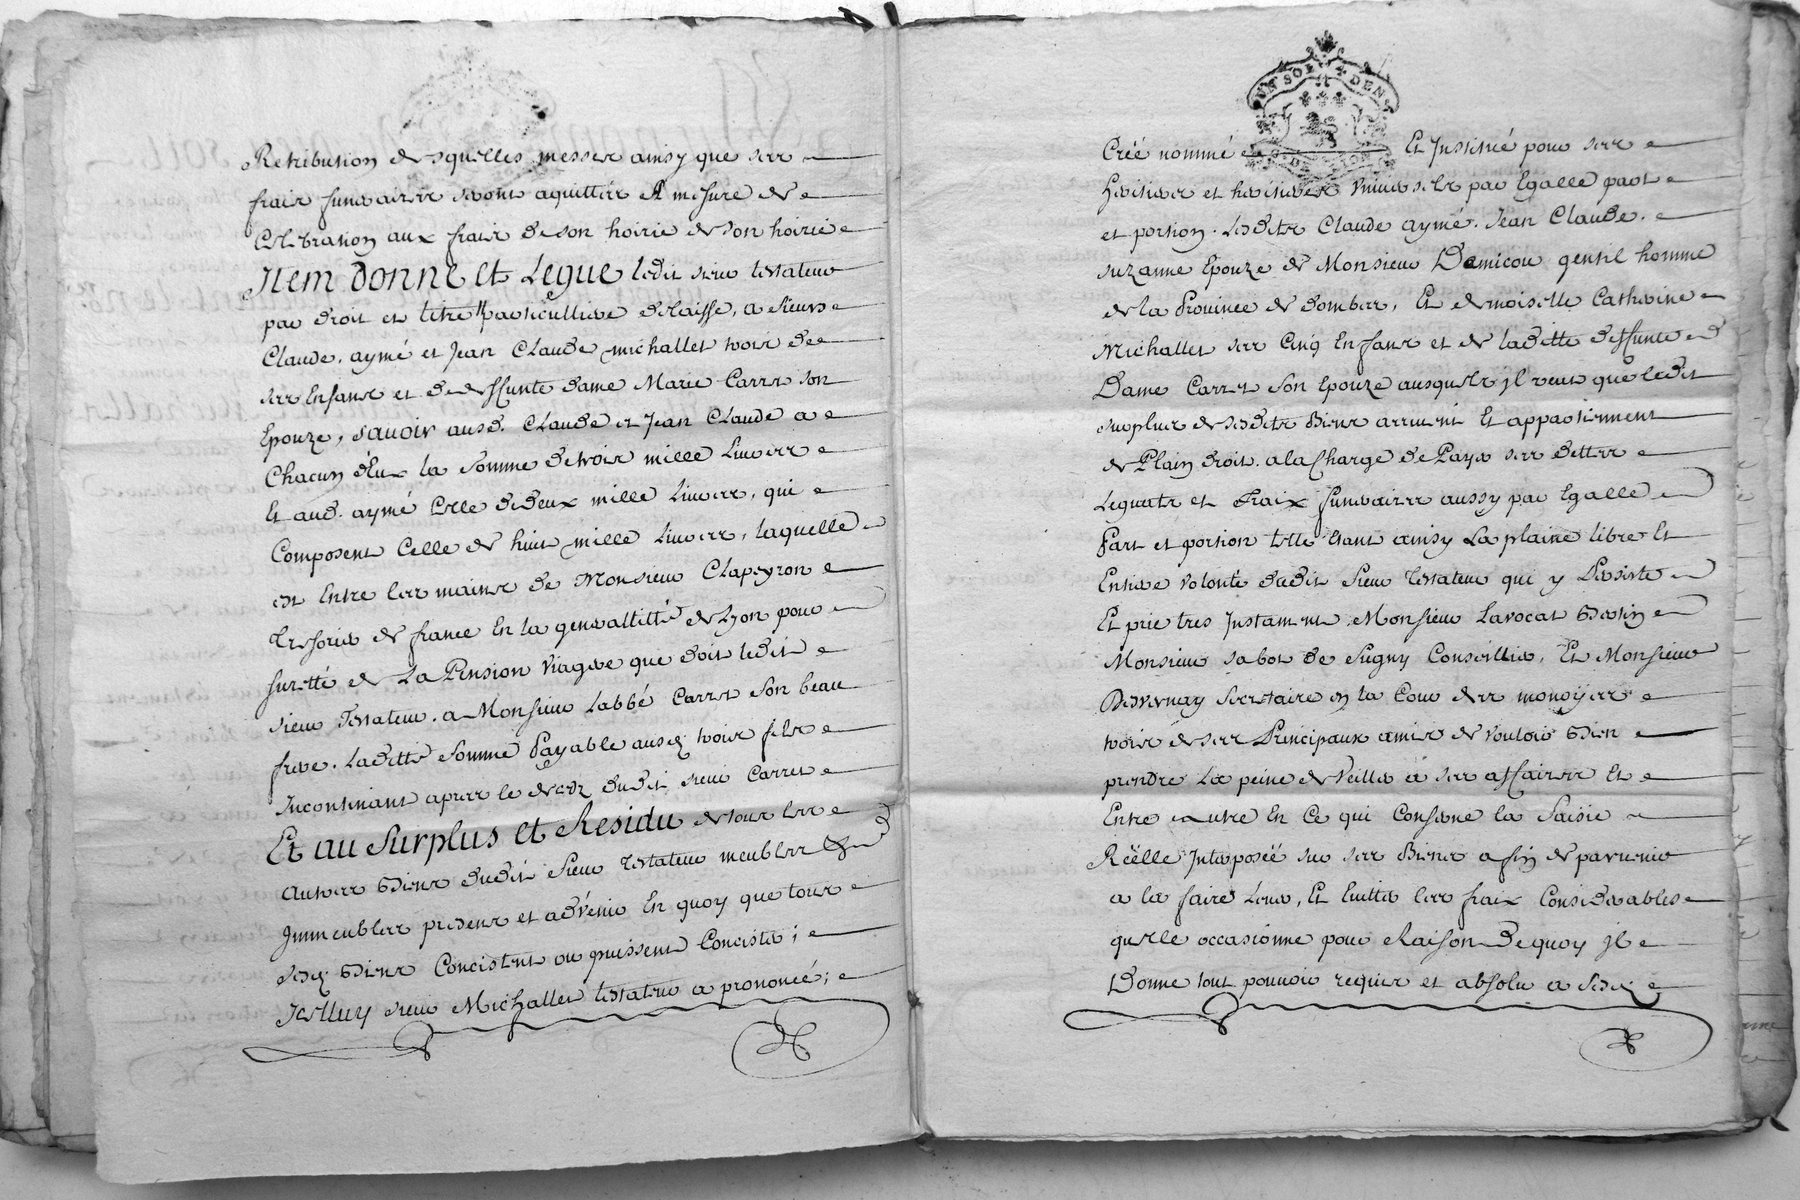 Retribution desquelles messes ainsy que ses
frais funeraires seront aquittés A mesure de
Celebration aux frais de son hoirie de son hoirie
Item donne et Legue ledit sieur testateur
par droit et titre particullier delaisse, a sieurs
Claude, aymé et Jean Claude michallet trois de
ses Enfans et de deffunte dame Marie Carret son
Epouze, savoir ausd. Claude et Jean Claude a
Chacun d'Eux la somme de trois mille Livres
Et aud. aymé Celle de deux mille Livres, qui
Composent Celle de huit mille Livres, laquelle
est Entre les mains de Monsieur Clapeyron
Tresorier de france En la generallitté de Lyon pour
suretté de La Pension viagere que doit ledit
sieur Testateur a Monsieur Labbé Carret son beau
frere. Laditte somme Payable ausd. trois fils
Incontinant apres le decez dudit sieur Carret
Et au Surplus et Residu de tous les
autres Biens dudit sieur Testateur meubles &
Immeubles presens et advenir En quoy que tous
sesd. Biens Concistent ou puissent Concister;
Icelluy sieur Michallet testateur a prononcé;
UN SOL 4 DEN
Créé nommé Et Institué pour ses
heritiers et heritieres universels par Egalle part
et portion. Lesdits Claude aymé. Jean Claude.
suzanne Epouze de Monsieur Damicou gentil homme
de la Province de dombes, Et demoiselle Catherine
Michallet ses Cinq Enfans et de laditte deffunte
Dame Carret son Epouze ausquels il veut que ledit
surplus desdits Biens arrivent Et appartiennent
de Plain droit. a la Charge de Payer ses dettes
Leguats et fraix funeraires aussy par Egalle
Part et portion telle Etant ainsy La plaine libre Et
Entiere volonté dudit sieur Testateur qui y Persiste
Et prie tres Instament Monsieur Lavocat Bertin
Monsieur sabot de sugny Conseiller, Et Monsieur
Secretaire en la Cour des monoyes
trois de ses Principaux amis de vouloir Bien
prendre La peine de veiller a ses affaires Et
Entre autre En Ce qui Conserne la saisie
Réelle Interposée sur ses Biens afin de parvenir
a la faire Lever, Et Eviter les fraix Considerables
quelle occasionne pour Raison de quoy il
Donne tout pouvoir requis et absolu a sesd.